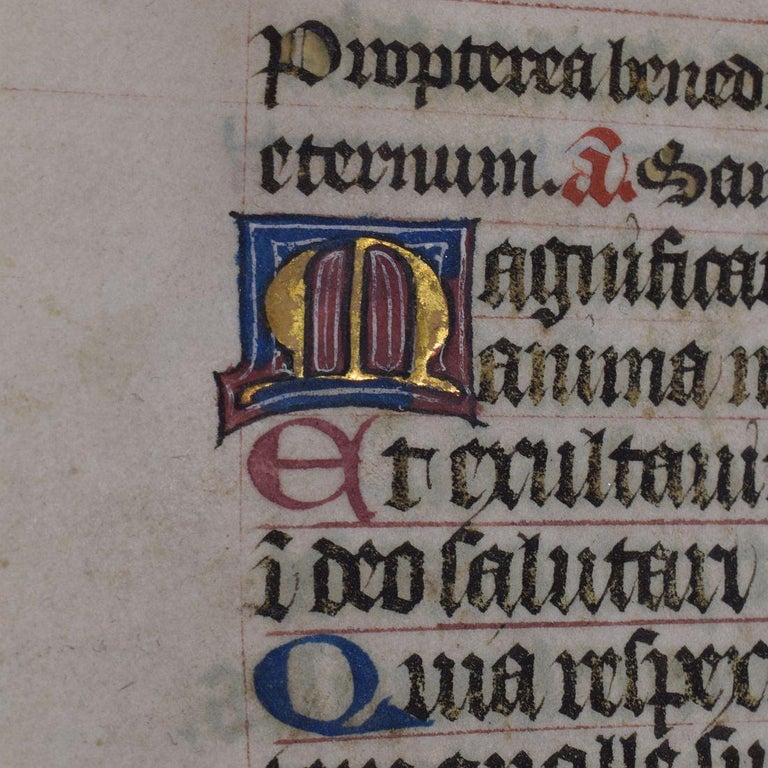 Propterea bened
eternum. A. San
Magnificat
anima m
Et exultavit
i deo salutari
Quia respex